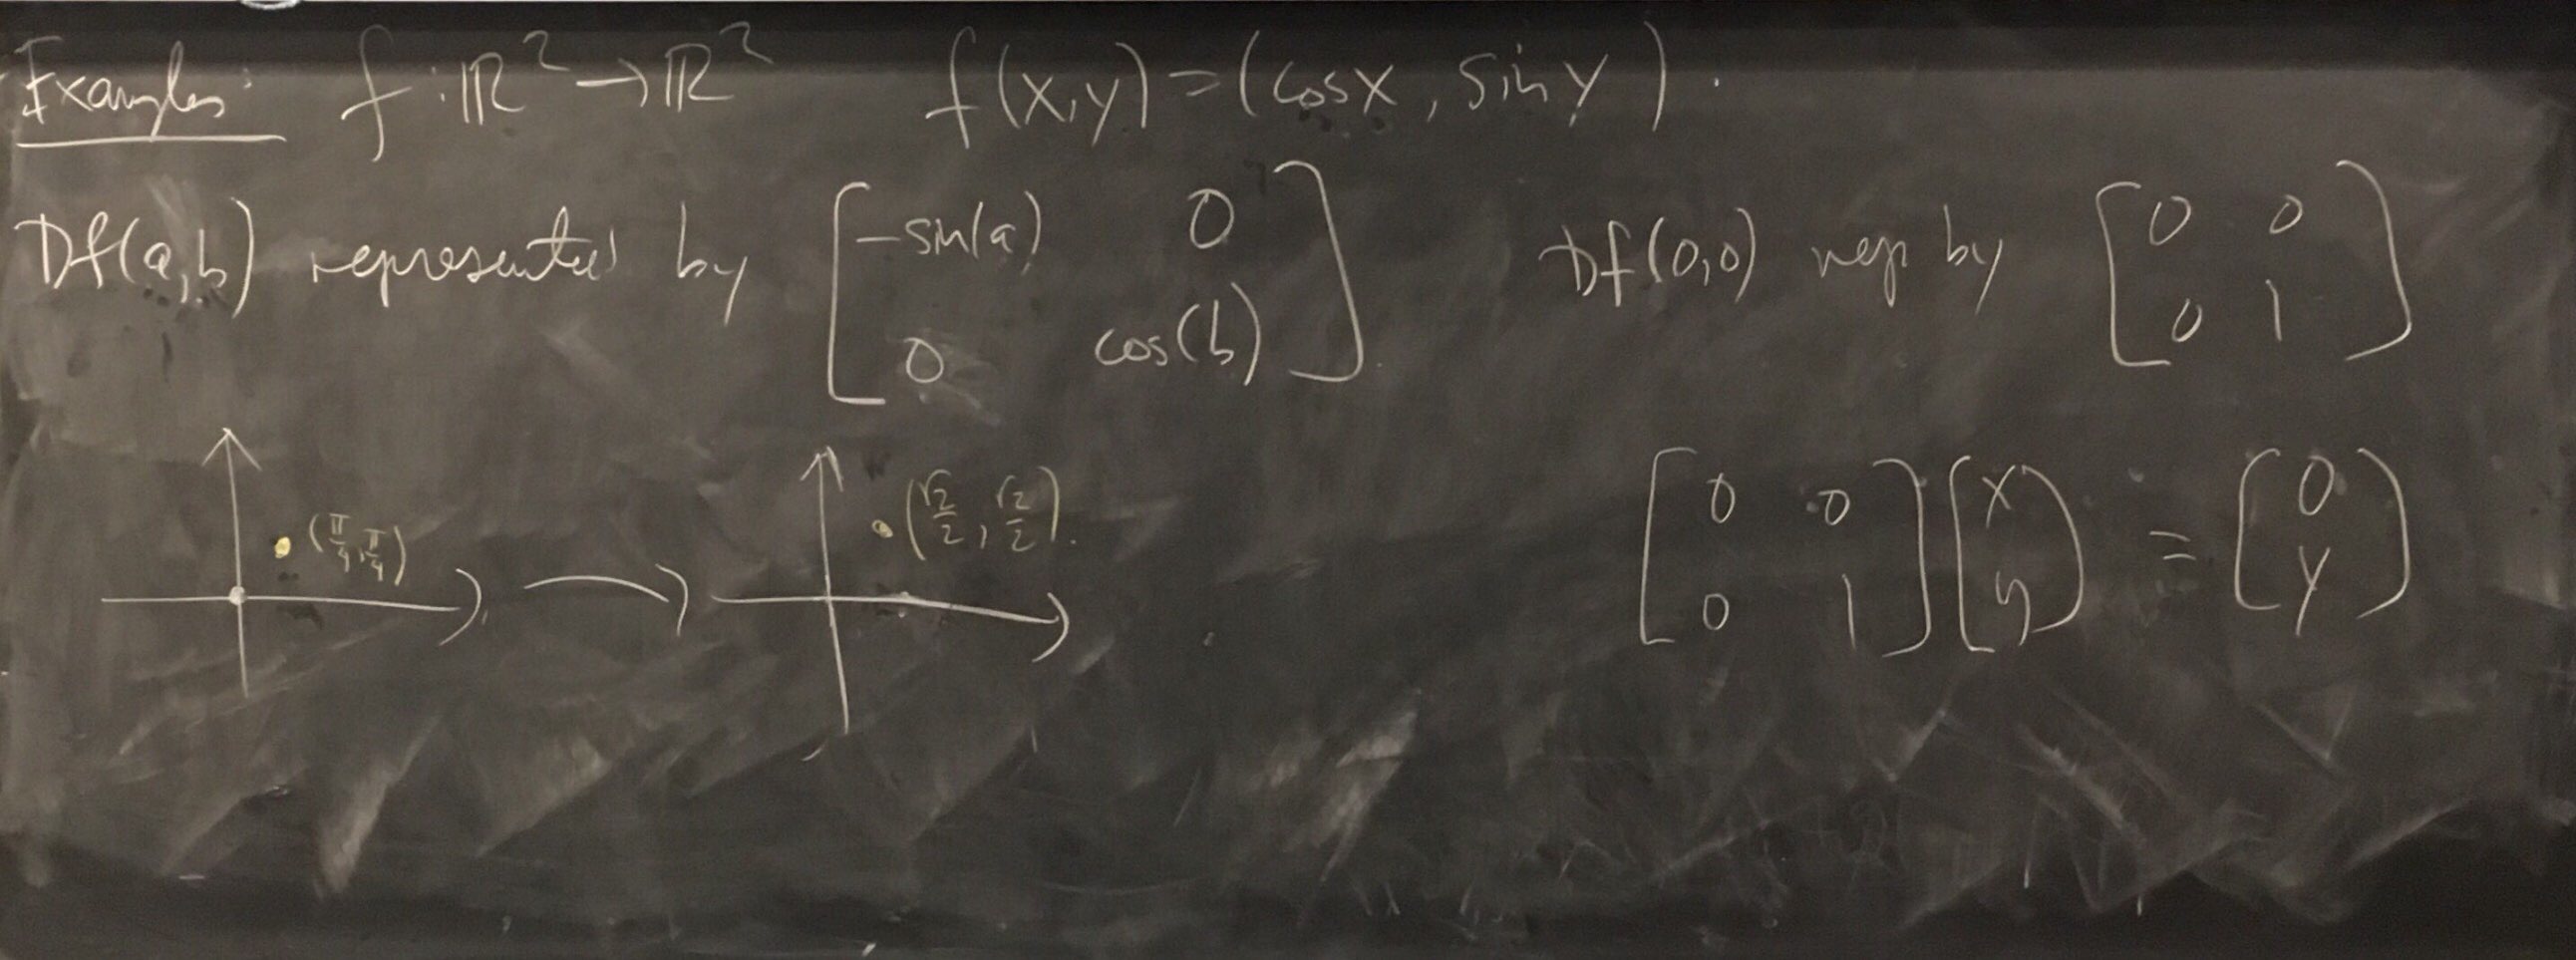 Examples: f : ℝ² → ℝ² f(x,y) = (cosx, sin y).
Df(a,b) represented by [-sin(a) 0; 0 cos(b)] Df(0,0) rep by [0 0; 0 1]
(π/4, π/4) (√2/2, √2/2). [0 0; 0 1] [x; y] = [0; y]